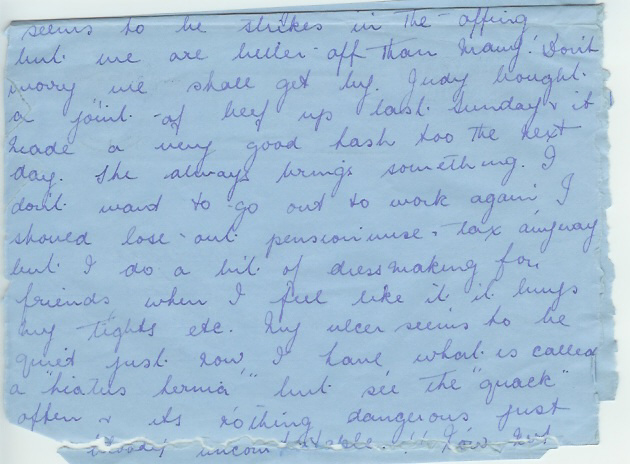 seems to be strikes in the offing
but we are better off than many! Don't
worry we shall get by. Judy bought
a joint of beef up last Sunday & it
made a very good hash too the next
day. She always brings something. I
don't want to go out to work again I
should lose out pensionwise & tax anyway
but I do a bit of dressmaking for
friends when I feel like it it buys
my tights etc. My ulcer seems to be
quiet just now I have what is called
a "hiatus hernia" but see the "quack"
often & its nothing dangerous just
bloody uncomfortable.!!